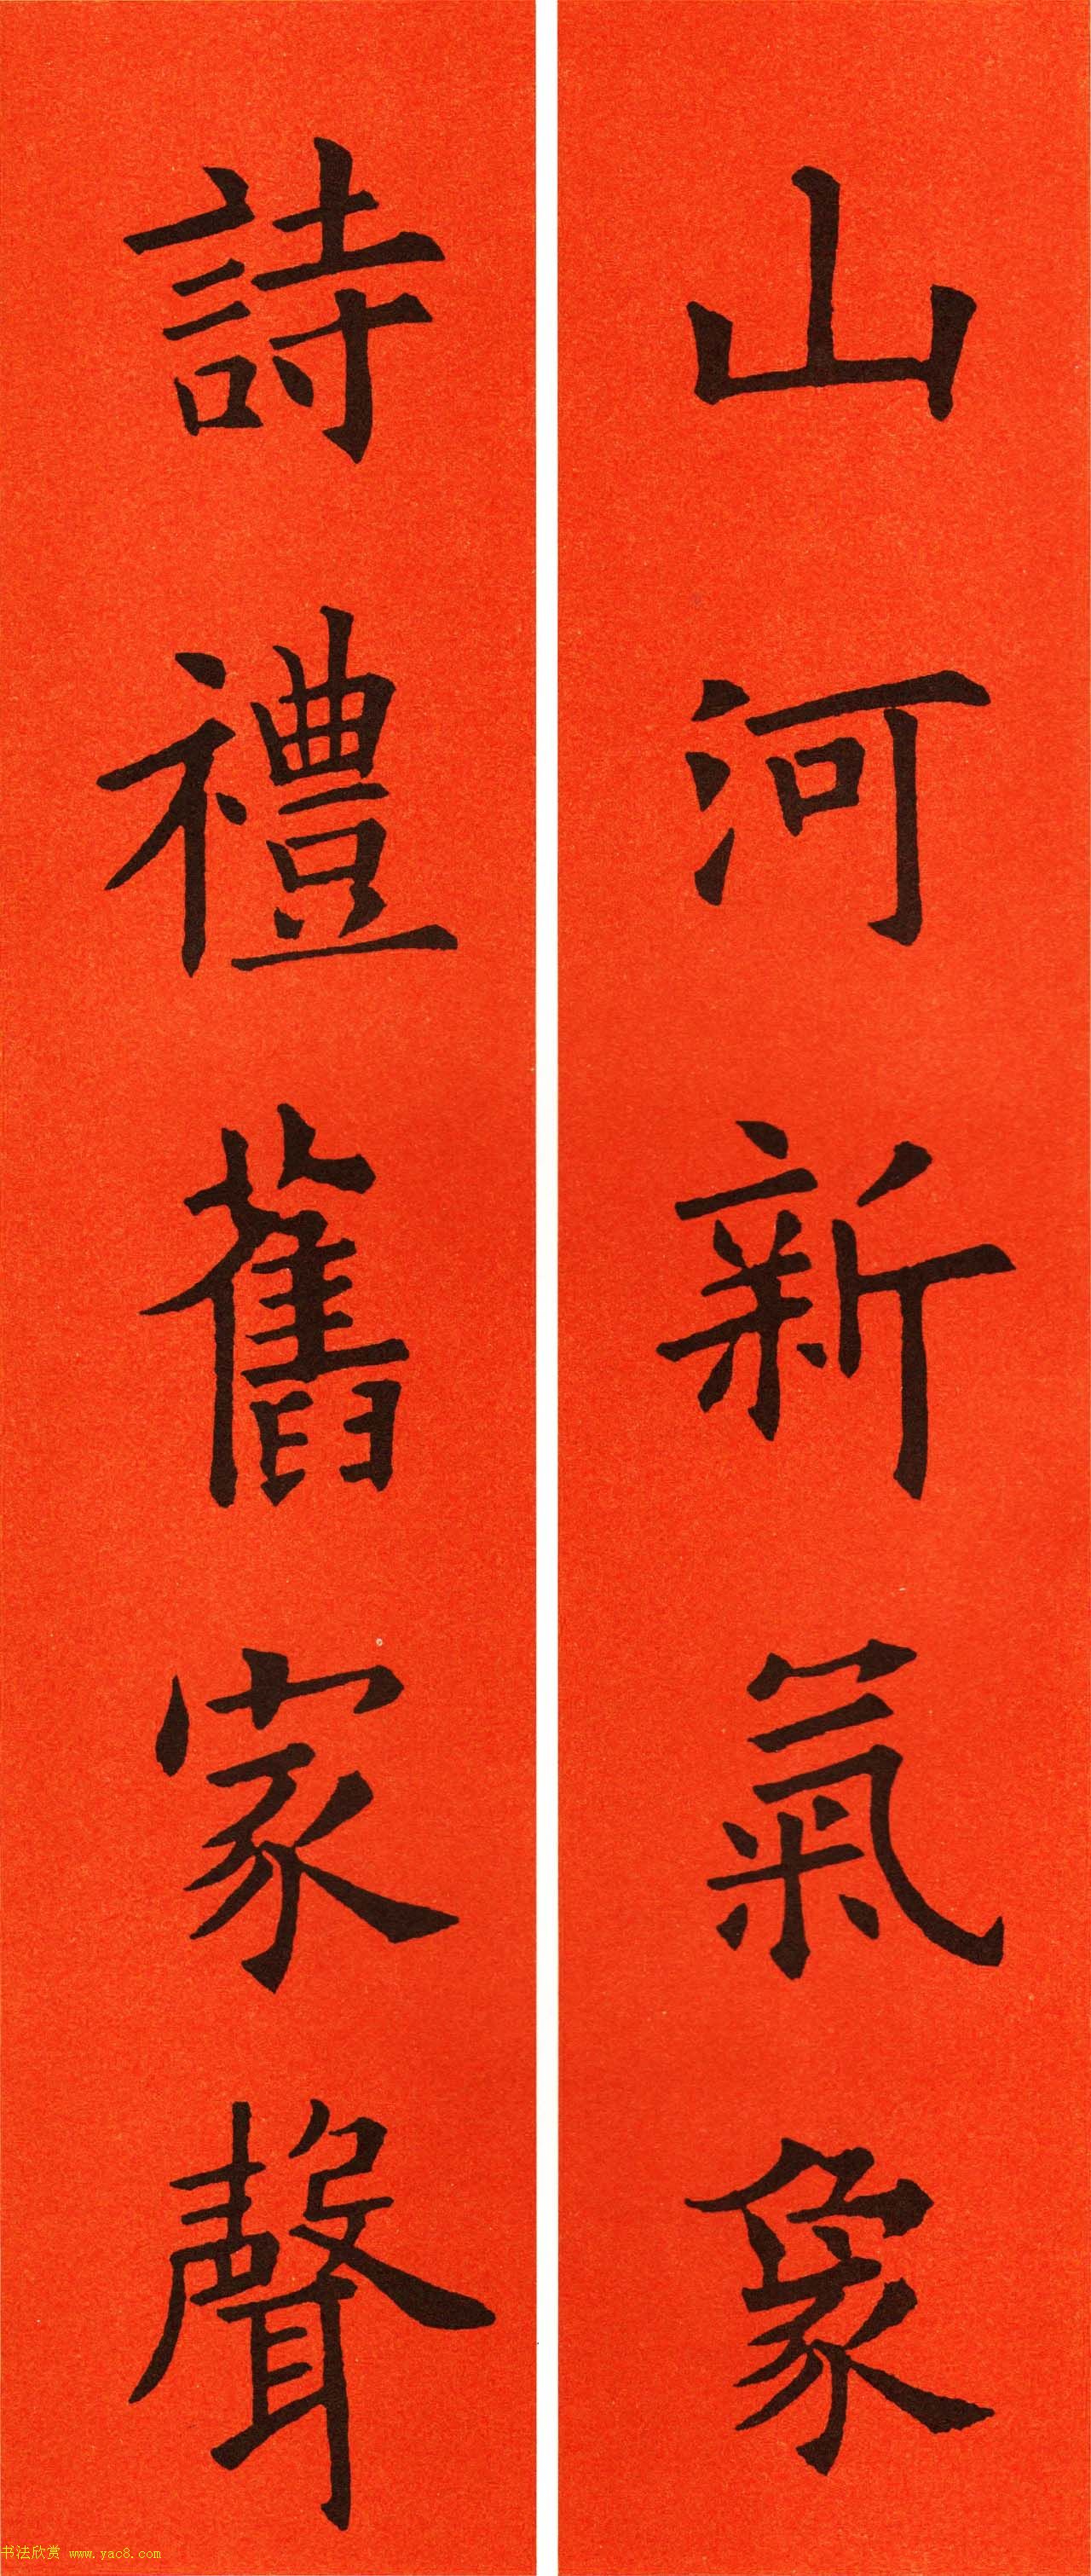 山河新氣象
詩禮舊家聲
书法欣赏 www.yac8.com